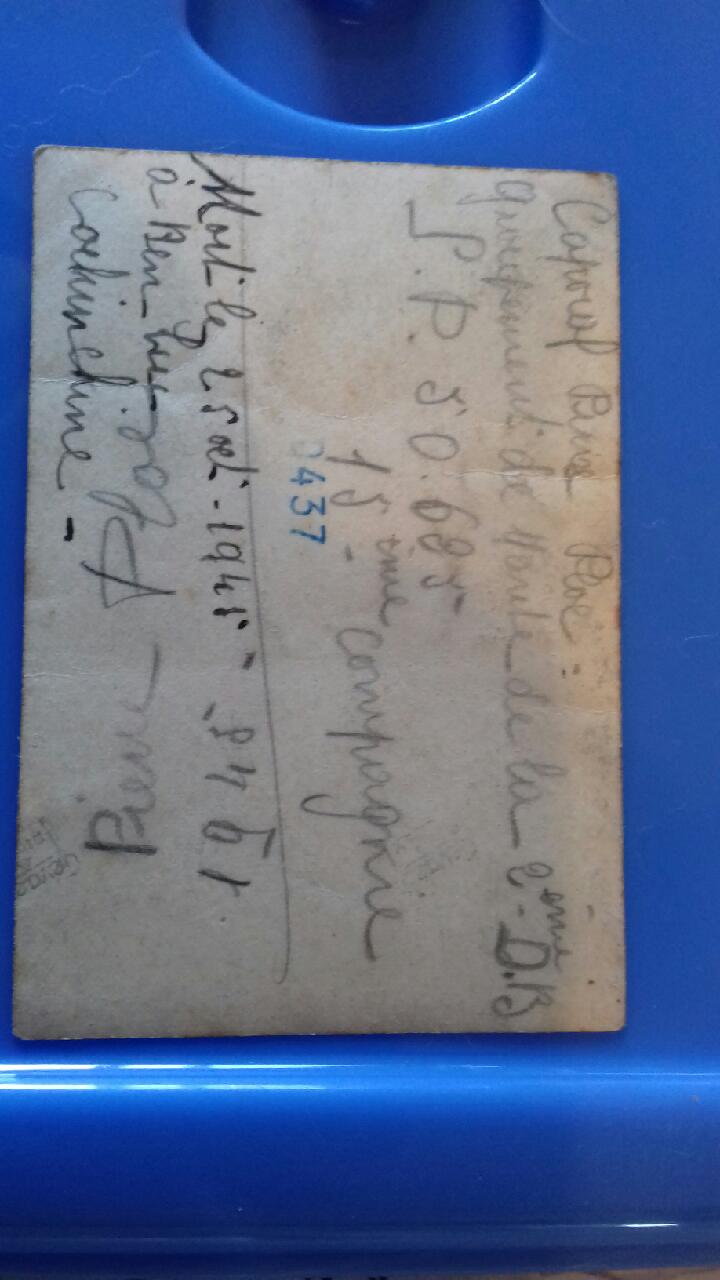 Caporal Pierre Ploë.
groupement de marche de la 2ème D.B
S.P. 50.685
15ème compagnie
3437
Mort le 25 oct-1945-
à Ben-Luc-
Cochinchine-
Ploë Pierre